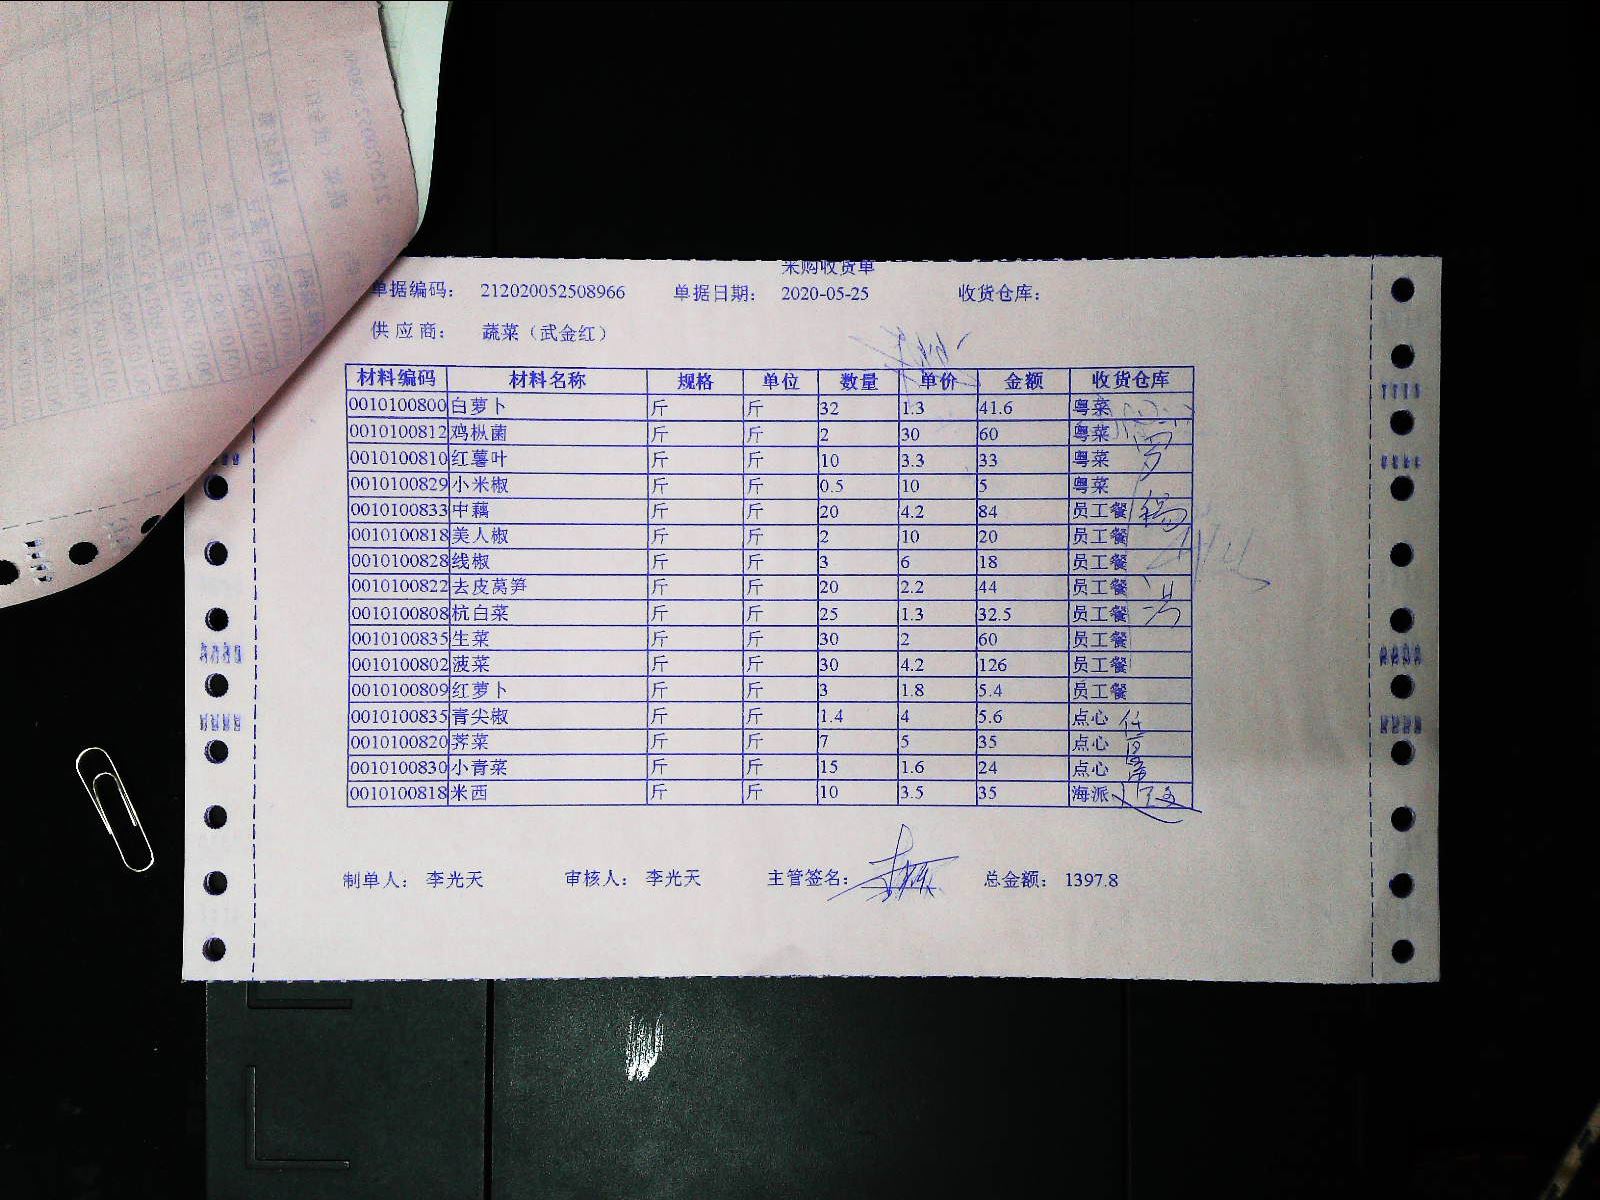 采购收货单
单据编码： 212020052508966 单据日期： 2020-05-25 收货仓库：
供应商： 蔬菜（武金红）
材料编码 材料名称 规格 单位 数量 单价 金额 收货仓库
0010100800 白萝卜 斤 斤 32 1.3 41.6 粤菜
0010100812 鸡枞菌 斤 斤 2 30 60 粤菜
0010100810 红薯叶 斤 斤 10 3.3 33 粤菜
0010100829 小米椒 斤 斤 0.5 10 5 粤菜
0010100833 中藕 斤 斤 20 4.2 84 员工餐
0010100818 美人椒 斤 斤 2 10 20 员工餐
0010100828 线椒 斤 斤 3 6 18 员工餐
0010100822 去皮莴笋 斤 斤 20 2.2 44 员工餐
0010100808 杭白菜 斤 斤 25 1.3 32.5 员工餐
0010100835 生菜 斤 斤 30 2 60 员工餐
0010100802 菠菜 斤 斤 30 4.2 126 员工餐
0010100809 红萝卜 斤 斤 3 1.8 5.4 员工餐
0010100835 青尖椒 斤 斤 1.4 4 5.6 点心
0010100820 荠菜 斤 斤 7 5 35 点心
0010100830 小青菜 斤 斤 15 1.6 24 点心
0010100818 米西 斤 斤 10 3.5 35 海派
制单人： 李光天 审核人： 李光天 主管签名： 总金额： 1397.8